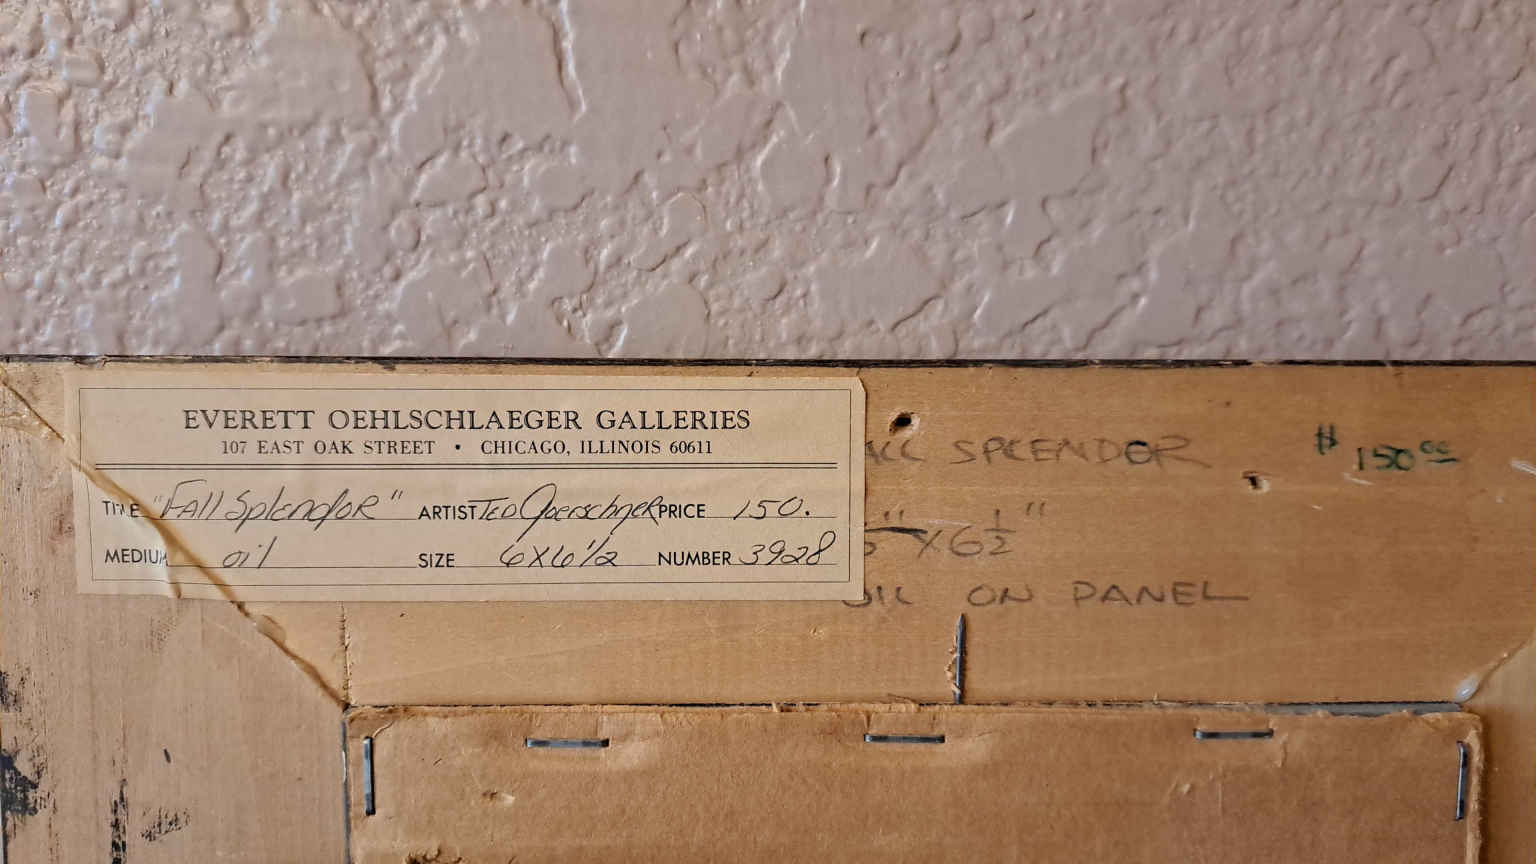 EVERETT OEHLSCHLAEGER GALLERIES
107 EAST OAK STREET • CHICAGO, ILLINOIS 60611
TITLE "Fall Splendor" ARTIST Ted Goerschner PRICE 150.
MEDIUM oil SIZE 6x6 1/2 NUMBER 3928
ALL SPLENDOR $ 150.00
x 6 1/2"
OIL ON PANEL